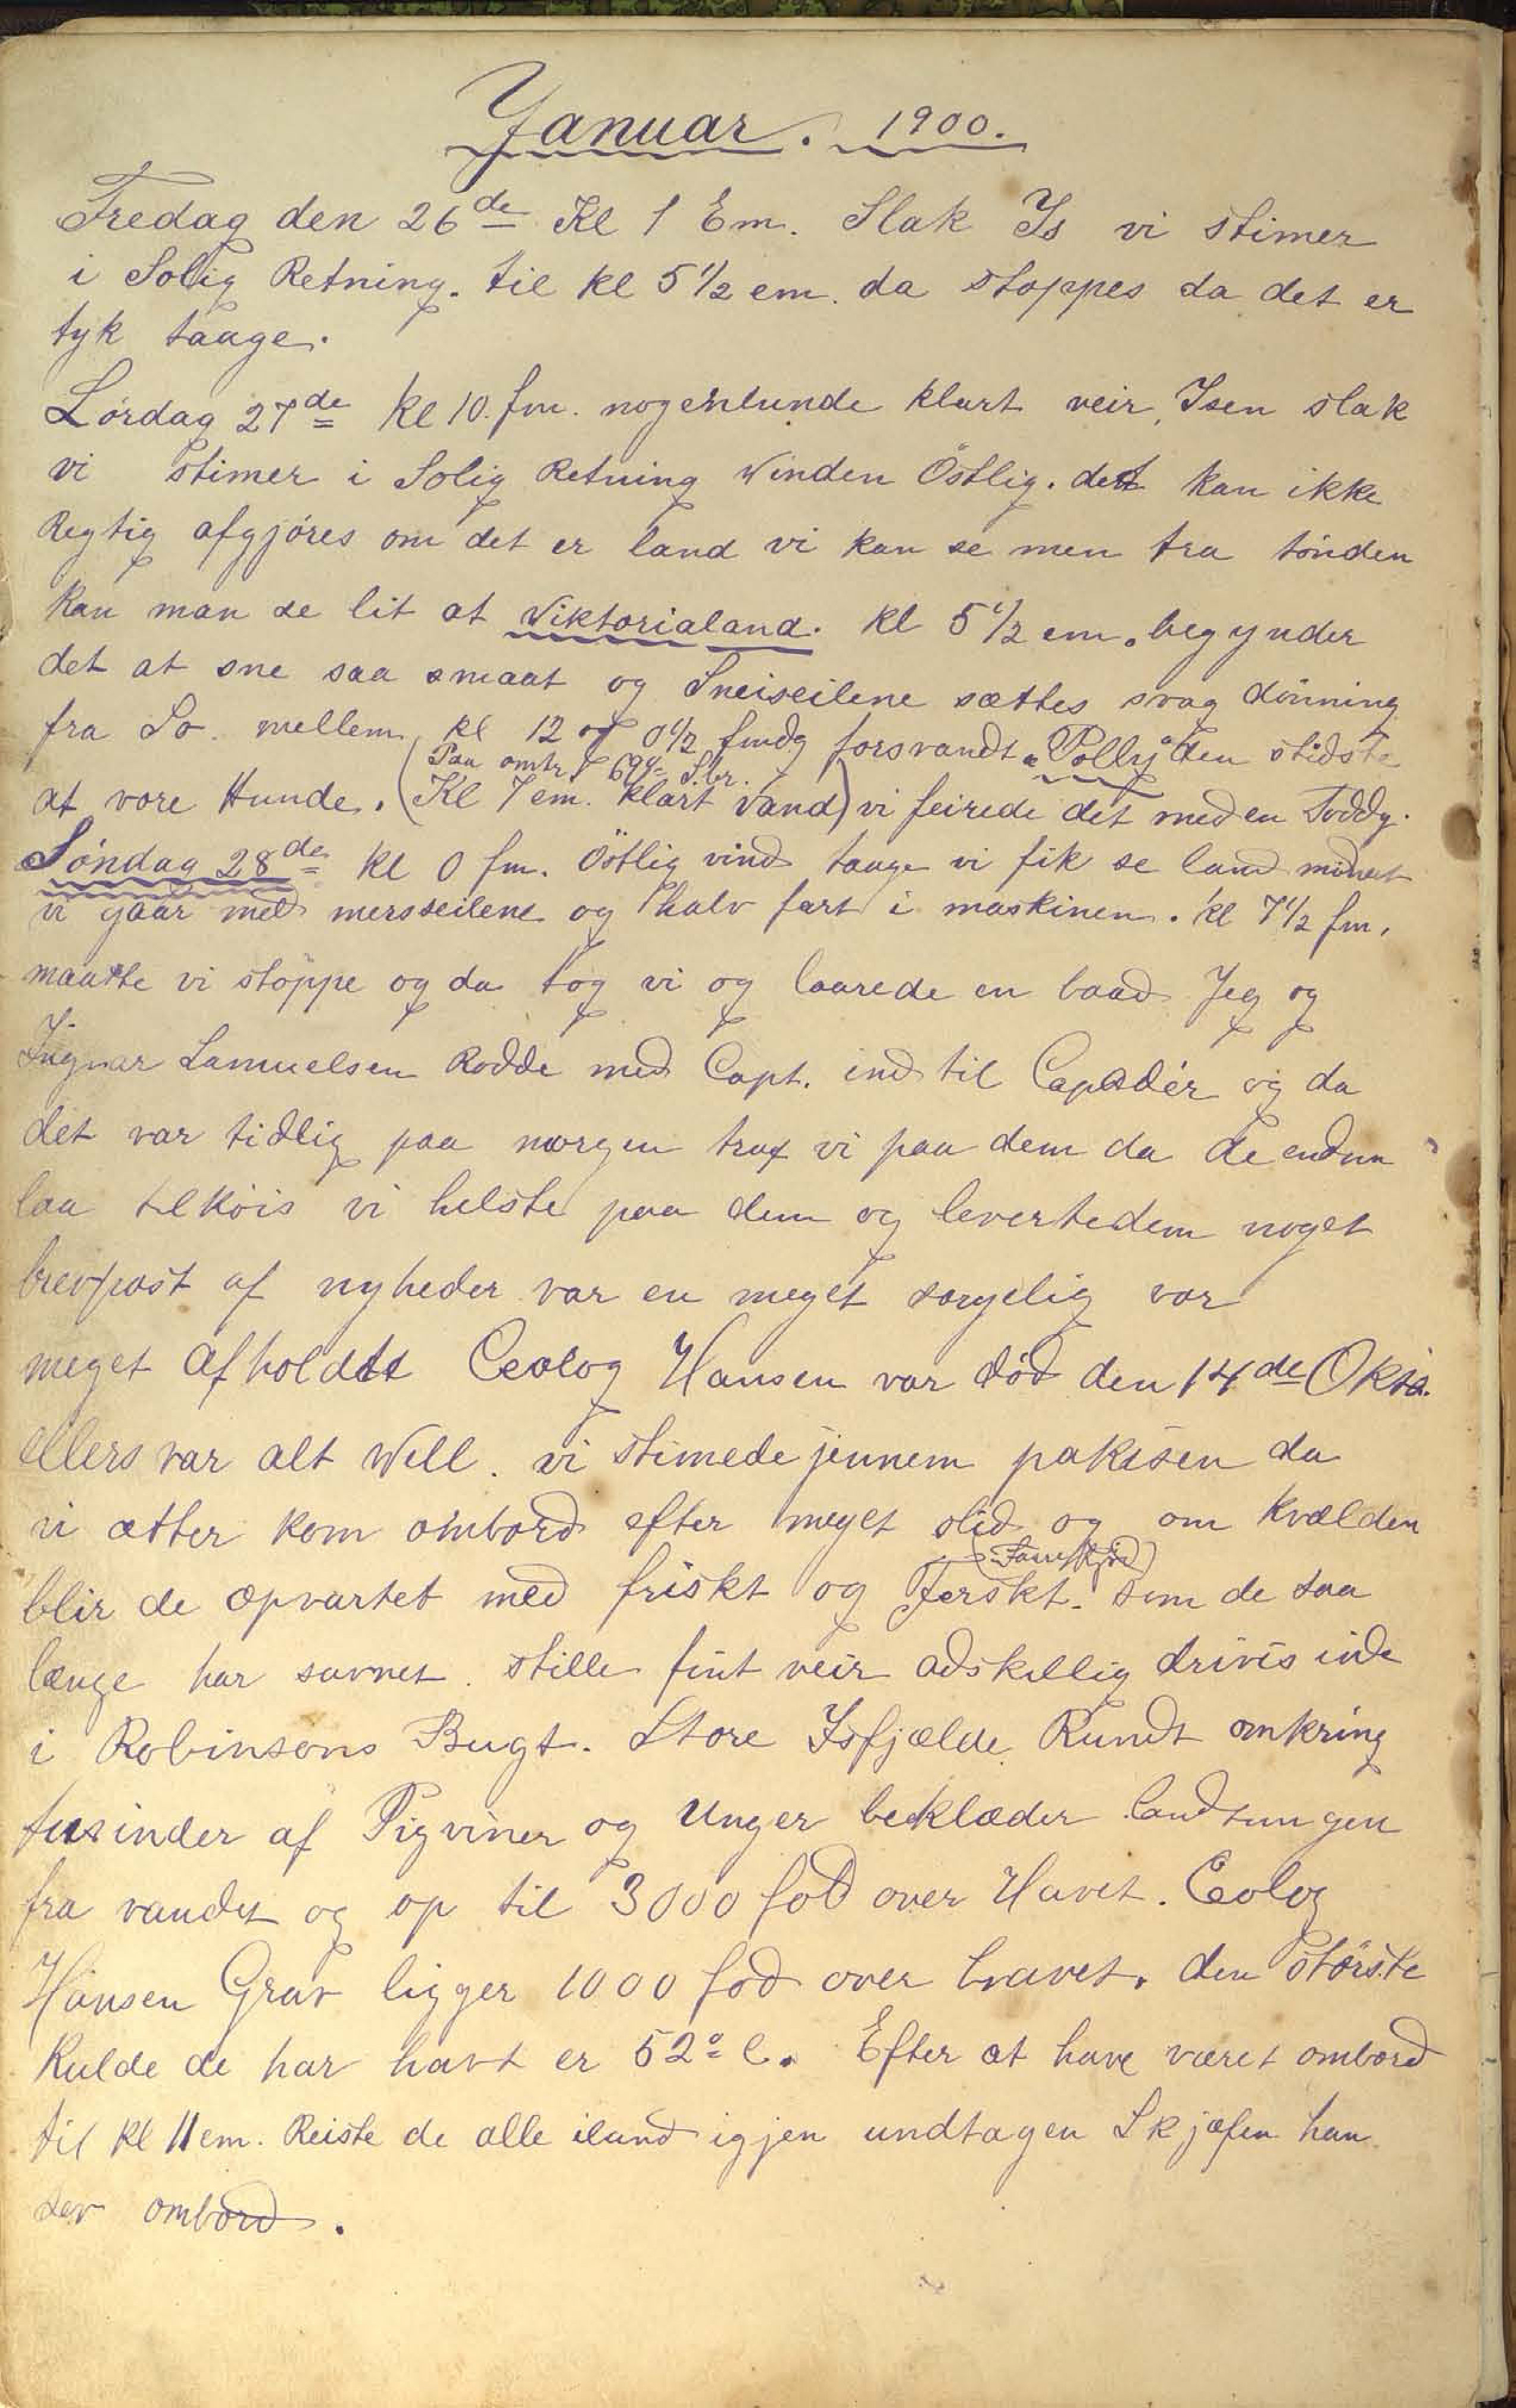 Januar. 1900.
Fredag den 26de Kl 1 Em. Slak Is vi stimer
i Solig Retning. til kl 5 1/2 em. da stoppes da det er
tyk taage.
Lørdag 27de Kl 10. fm. nogenlunde klart veir, Isen slak
vi stimer i Solig Retning Vinden Östlig. det kan ikke
Regtig afgjóres om det er land vi kan se men fra tónden
kan man se lit at Viktorialand. Kl 5 1/2 em. begynder
det at sne saa smaat og Sneiseilene sættes svag dónning
fra So. mellem kl 12 og 0 1/2 fmdg forsvandt "Polly" den sidste
(Paa omtr 69° S.br.
at vore Hunde. (Kl 7 em. klart vand) vi feirede det med en Toddy.
Sóndag 28de Kl 0 fm. östlig vind taage vi fik se land
vi gaar med mersseilene og halv fart i maskinen. kl 7 1/2 fm,
maatte vi stoppe og da tog vi og laarede en baad Jeg og
Ingvar Samuelsen Rodde med Capt. ind til Cap Adér og da
det var tidlig paa morgen traf vi paa dem da de endnu
laa tilkois vi helste paa dem og levertedem noget
brevpost af nyheder var en meget sorgelig vor
meget afholdtt Ceolog Hansen var dód den 14de Okto.
ellers var alt Well. vi stimede jennem pakisen da
vi atter kom ombord efter meget slid og om kvælden
blir de opvartet med friskt og Ferskt. som de saa
længe har savnet. stille fint veir adskellig drivis inde
i Robinsons Bugt. Store Isfjælde Rundt omkring
tusinder af Pigviner og Unger beklæder landtungen
fra vandet og op til 3000 fod over Havet. Ceolog
Hansen Grav ligger 1000 fod over havet. den störste
Kulde de har havt er 52° C. Efter at have været ombord
til kl 11 em. Reiste de alle iland igjen undtagen Skjæfen han
sov ombord.